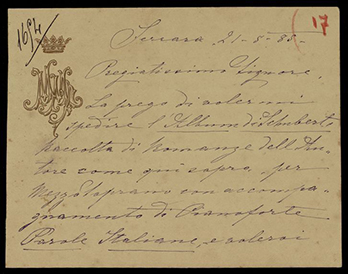 1654
17
Ferrara 21-5-88-
Pregiatissimo Signore,
La prego di volermi
spedire l'Album di Schubert
Raccolta di Romanze dell'Au-
tore come qui sopra, per
Mezzo Soprano con accompa-
gnamento di Pianoforte
Parole Italiane, e volersi